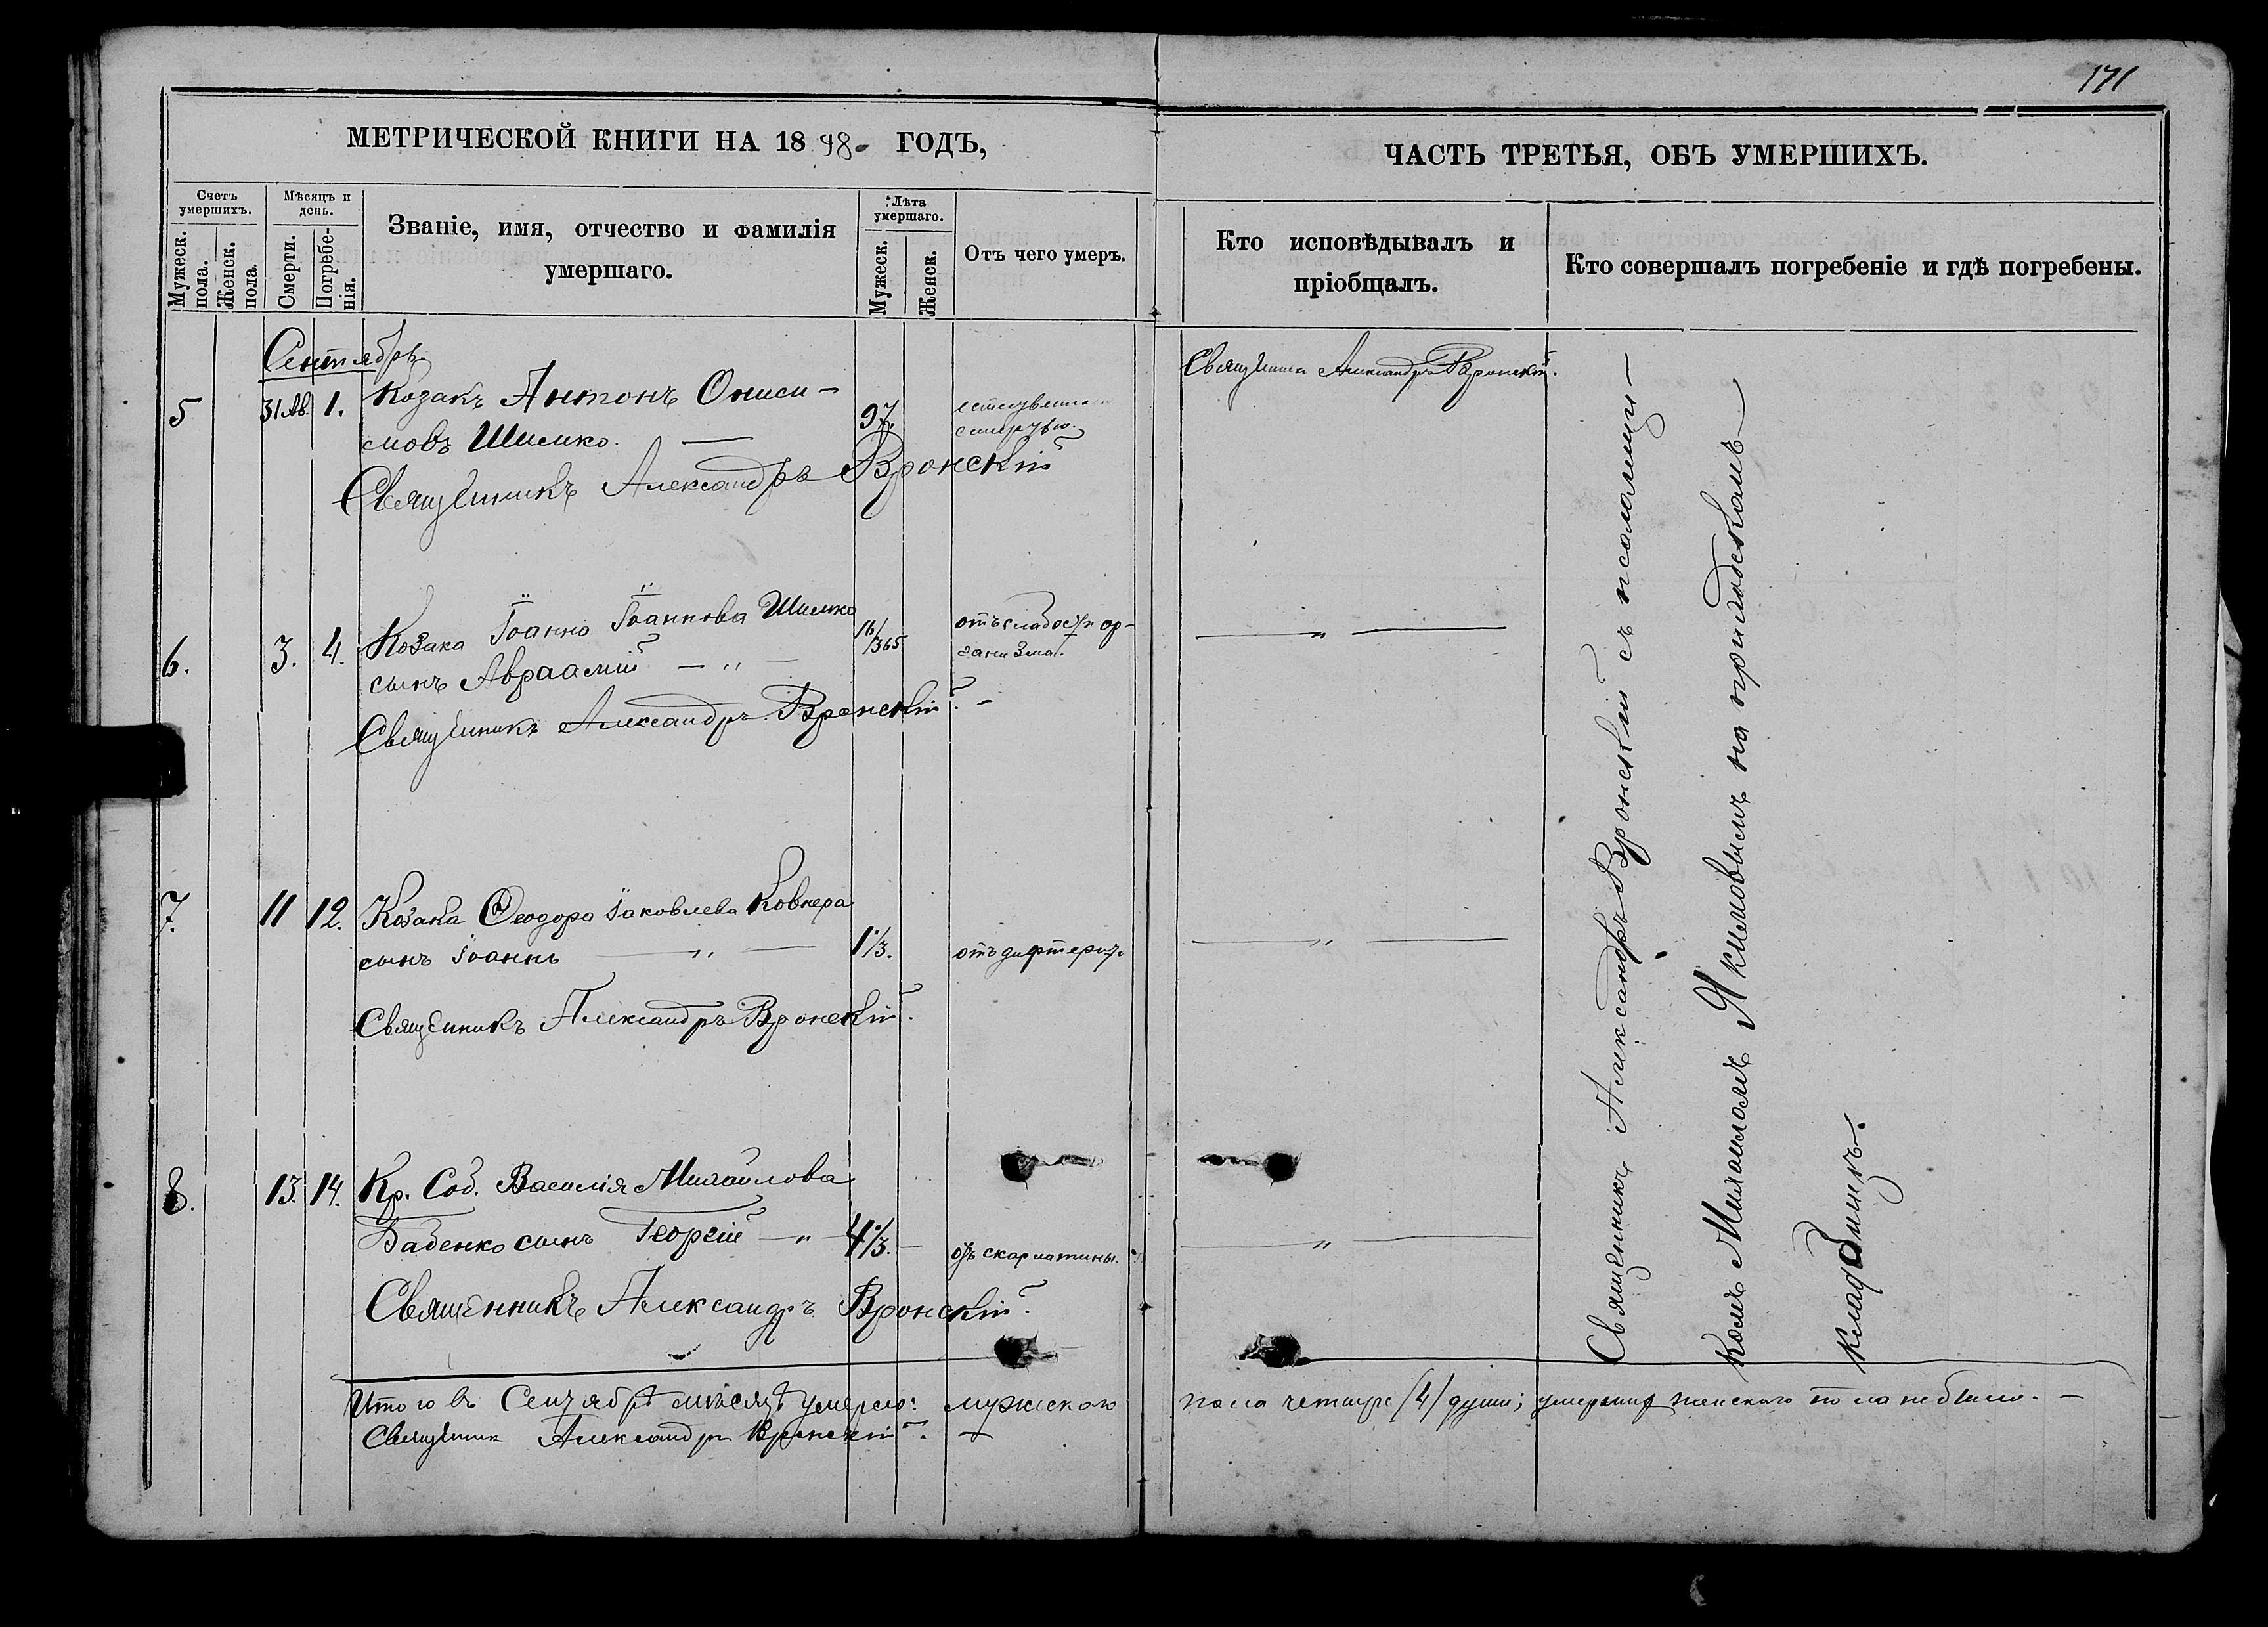 171
МЕТРИЧЕСКОЙ КНИГИ НА 1898 ГОДЪ,
ЧАСТЬ ТРЕТЬЯ, ОБЪ УМЕРШИХЪ.
Счетъ умершихъ.
Мужеск. пола.
Женск. пола.
Мѣсяцъ и день.
Смерти.
Погребенія.
Званіе, имя, отчество и фамилія
умершаго.
Лѣта умершаго.
Мужеск.
Женск.
Отъ чего умеръ.
Кто исповѣдывалъ и
пріобщалъ.
Кто совершалъ погребеніе и гдѣ погребены.
Сентябрь
5 31 Ав. 1. Козакъ Антонъ Ониси-
мовъ Шимко. 97.
Священникъ Александръ Вронскій
Священникъ Александръ Вронскій.
6. 3. 4. Козака Іоанна Іоаннова Шимко 16/365 отъ слабости ор-
сынъ Авраамій — „ — ганизма.
Священникъ Александръ Вронскій. —
— „ —
7. 11 12. Козака Ѳеодора Іаковлева Ковнера
сынъ Іоаннъ — „ — 1 1/3. отъ дифтерит.
Священникъ Александръ Вронскій.
— „ —
8. 13. 14. Кр. Соб. Василія Михайлова
Бабенко сынъ Георгій — „ — 4 1/3. — отъ скарлатины.
Священникъ Александръ Вронскій.
— „ —
Священникъ Александръ Вронскій съ псаломщи-
комъ Михаиломъ Якимовымъ на приходскомъ
кладбищѣ.
Итого въ Сентябрѣ мѣсяцѣ умерло: мужского пола четыре /4/ души; умершихъ женского пола не было. —
Священникъ Александръ Вронскій. —